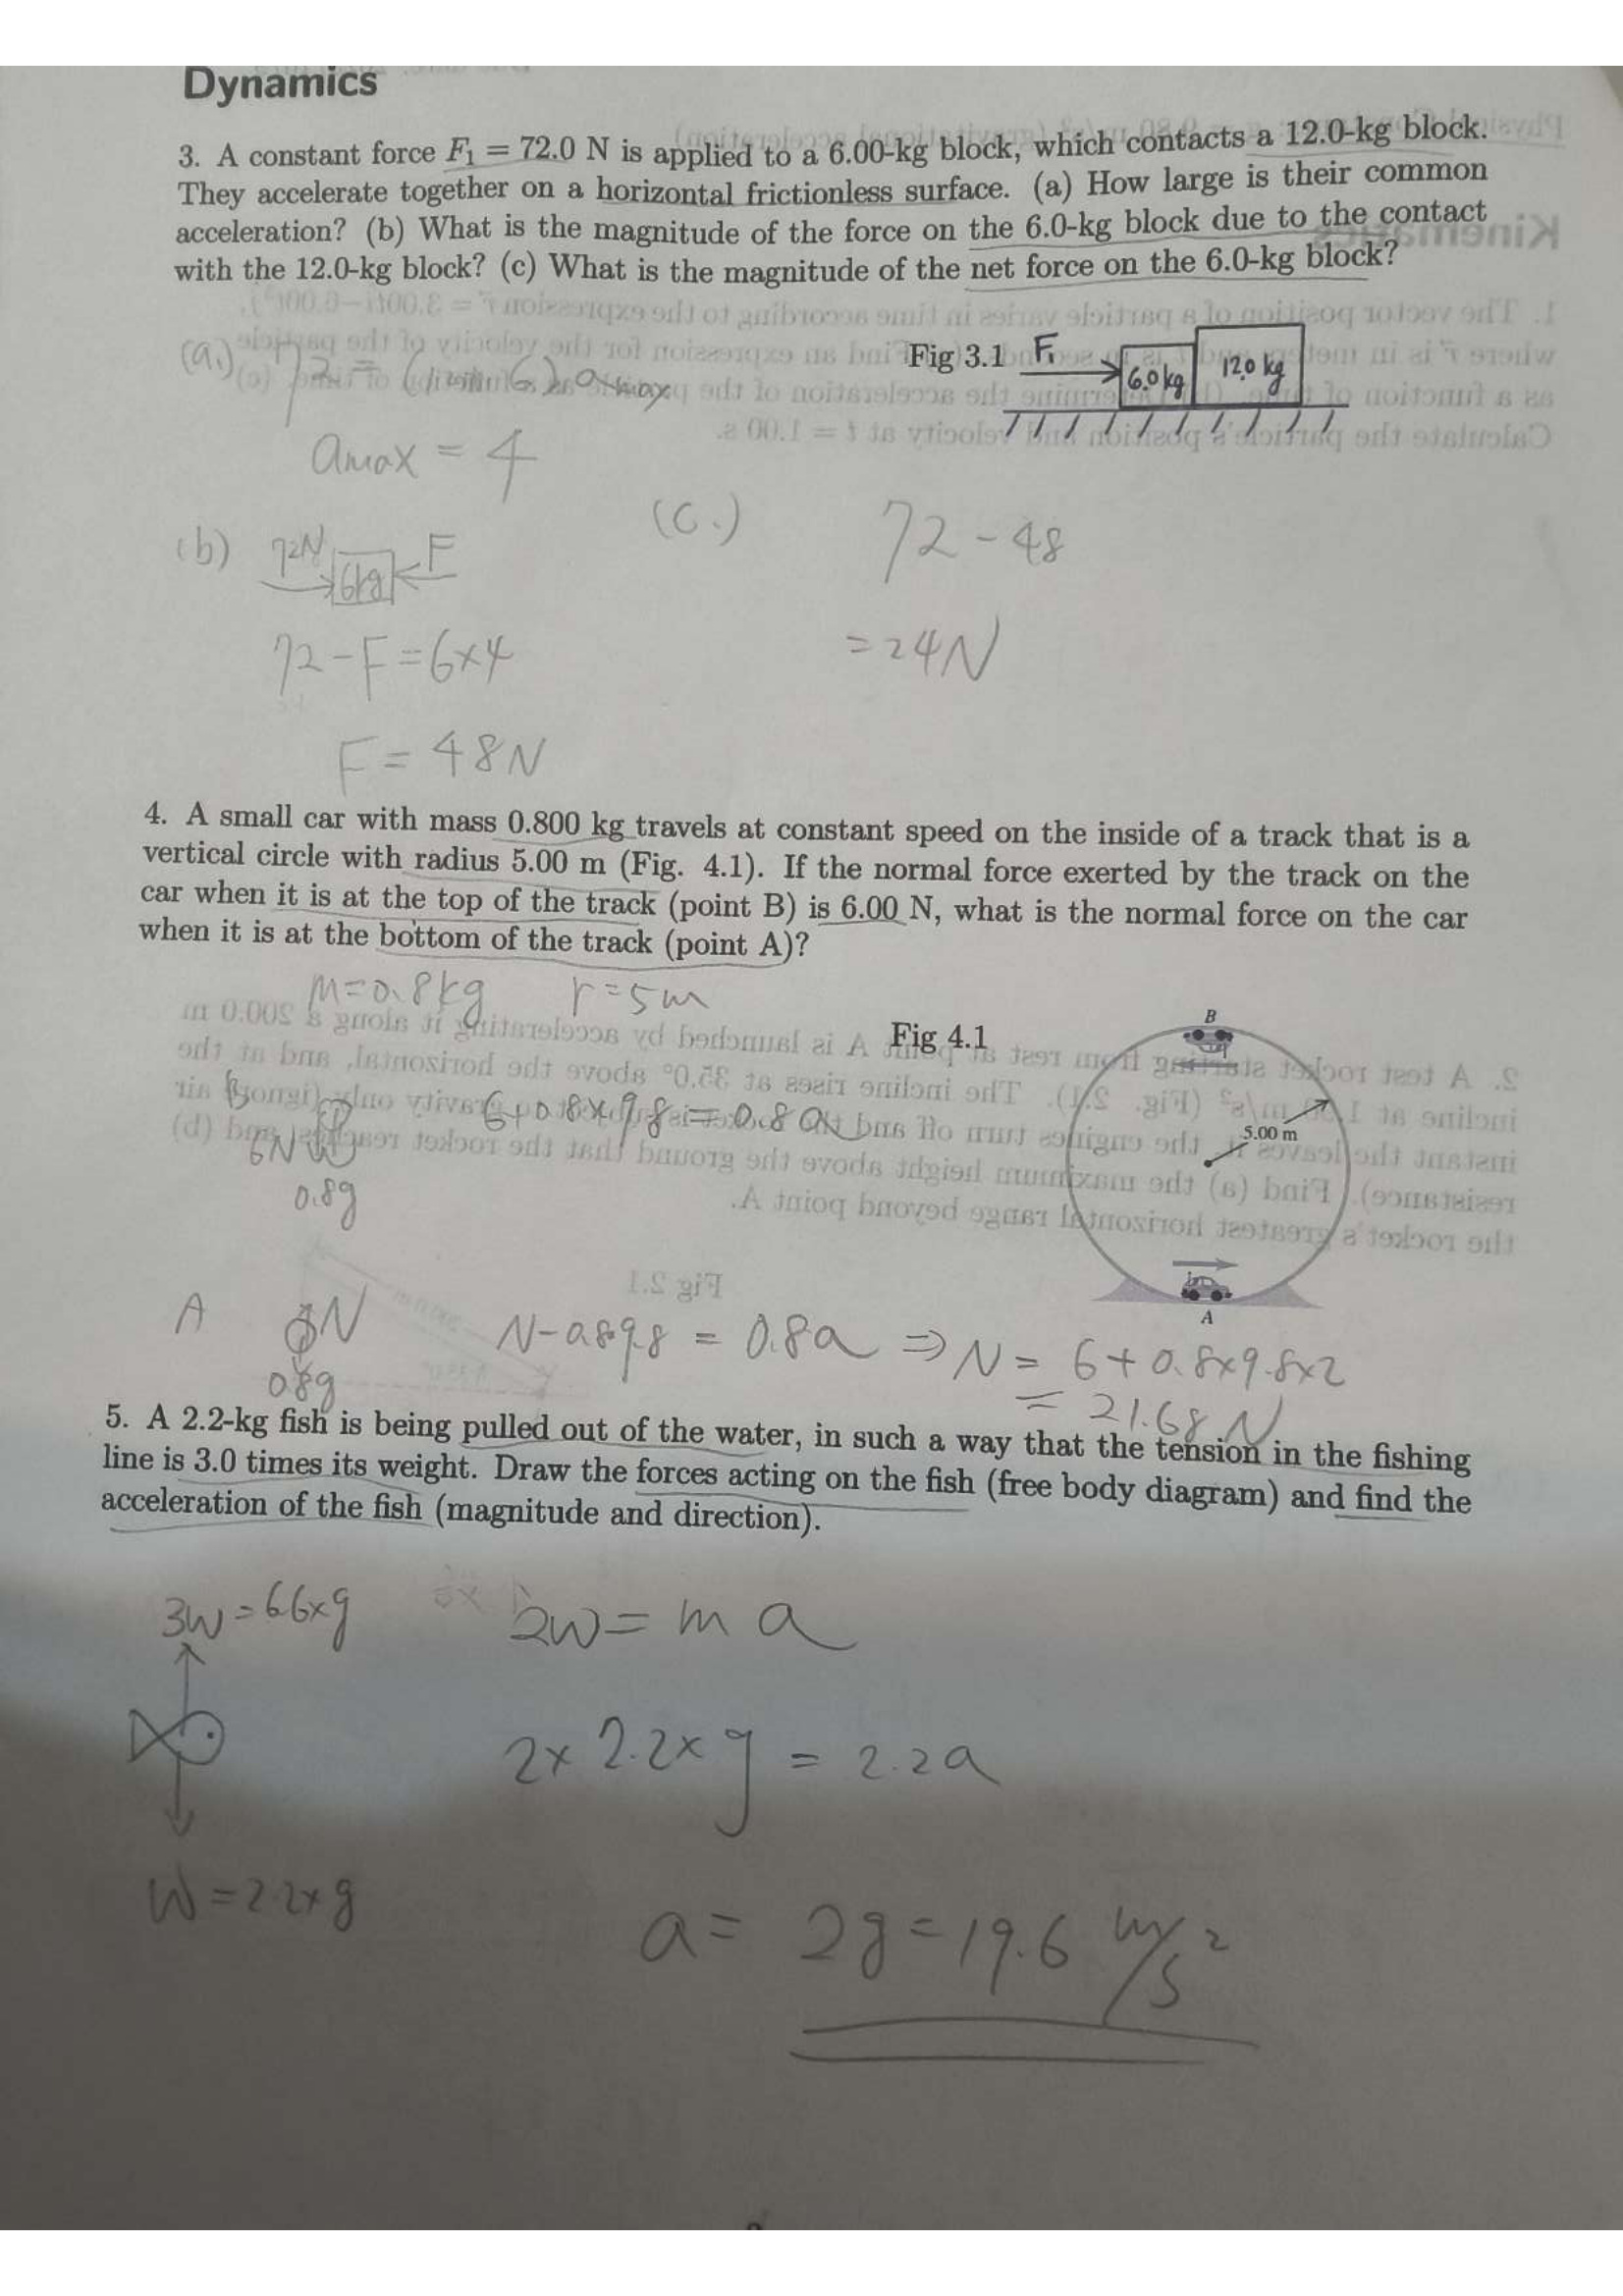 Dynamics
3. A constant force F₁ = 72.0 N is applied to a 6.00-kg block, which contacts a 12.0-kg block.
They accelerate together on a horizontal frictionless surface. (a) How large is their common
acceleration? (b) What is the magnitude of the force on the 6.0-kg block due to the contact
with the 12.0-kg block? (c) What is the magnitude of the net force on the 6.0-kg block?
Fig 3.1
F₁
6.0 kg
12.0 kg
(a.) 72 = amax
amax = 4
(b) 72N 6kg F
72-F=6×4
F = 48N
(c.) 72-48
=24N
4. A small car with mass 0.800 kg travels at constant speed on the inside of a track that is a
vertical circle with radius 5.00 m (Fig. 4.1). If the normal force exerted by the track on the
car when it is at the top of the track (point B) is 6.00 N, what is the normal force on the car
when it is at the bottom of the track (point A)?
M=0.8kg r=5m
Fig 4.1
B
5.00 m
A
B 6+0.8×9.8=0.8a
6N
0.8g
A N
0.8g
N-0.8·9.8 = 0.8a ⇒ N = 6+0.8×9.8×2
= 21.68 N
5. A 2.2-kg fish is being pulled out of the water, in such a way that the tension in the fishing
line is 3.0 times its weight. Draw the forces acting on the fish (free body diagram) and find the
acceleration of the fish (magnitude and direction).
3W=6.6×g
2W= ma
2×2.2×g = 2.2a
W=2.2×g
a= 2g=19.6 m/s²